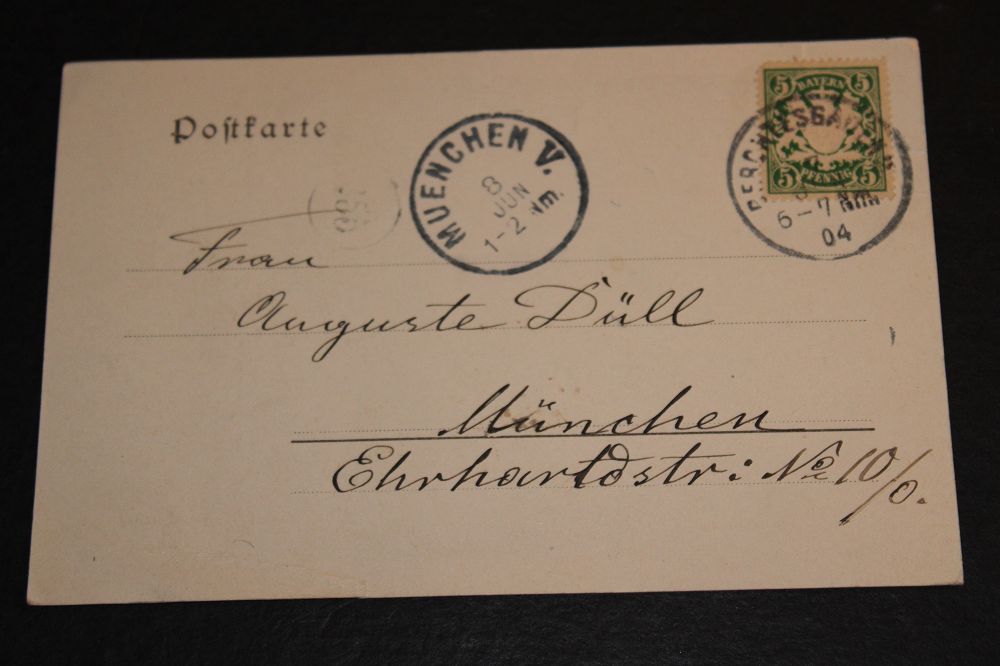 Postkarte
MUENCHEN V.
8
JUN
1-2 Nm.
5 BAYERN 5
5 PFENNIG 5
BERCHTESGADEN
6-7 NM
04
Frau
Auguste Düll
München
Ehrhardtstr: No 10/0.